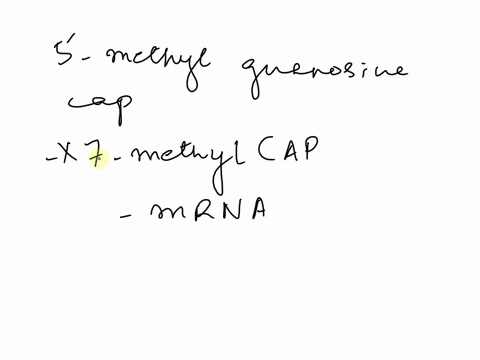 5'- methyl guanosine
cap
-X 7-methyl CAP
- mRNA